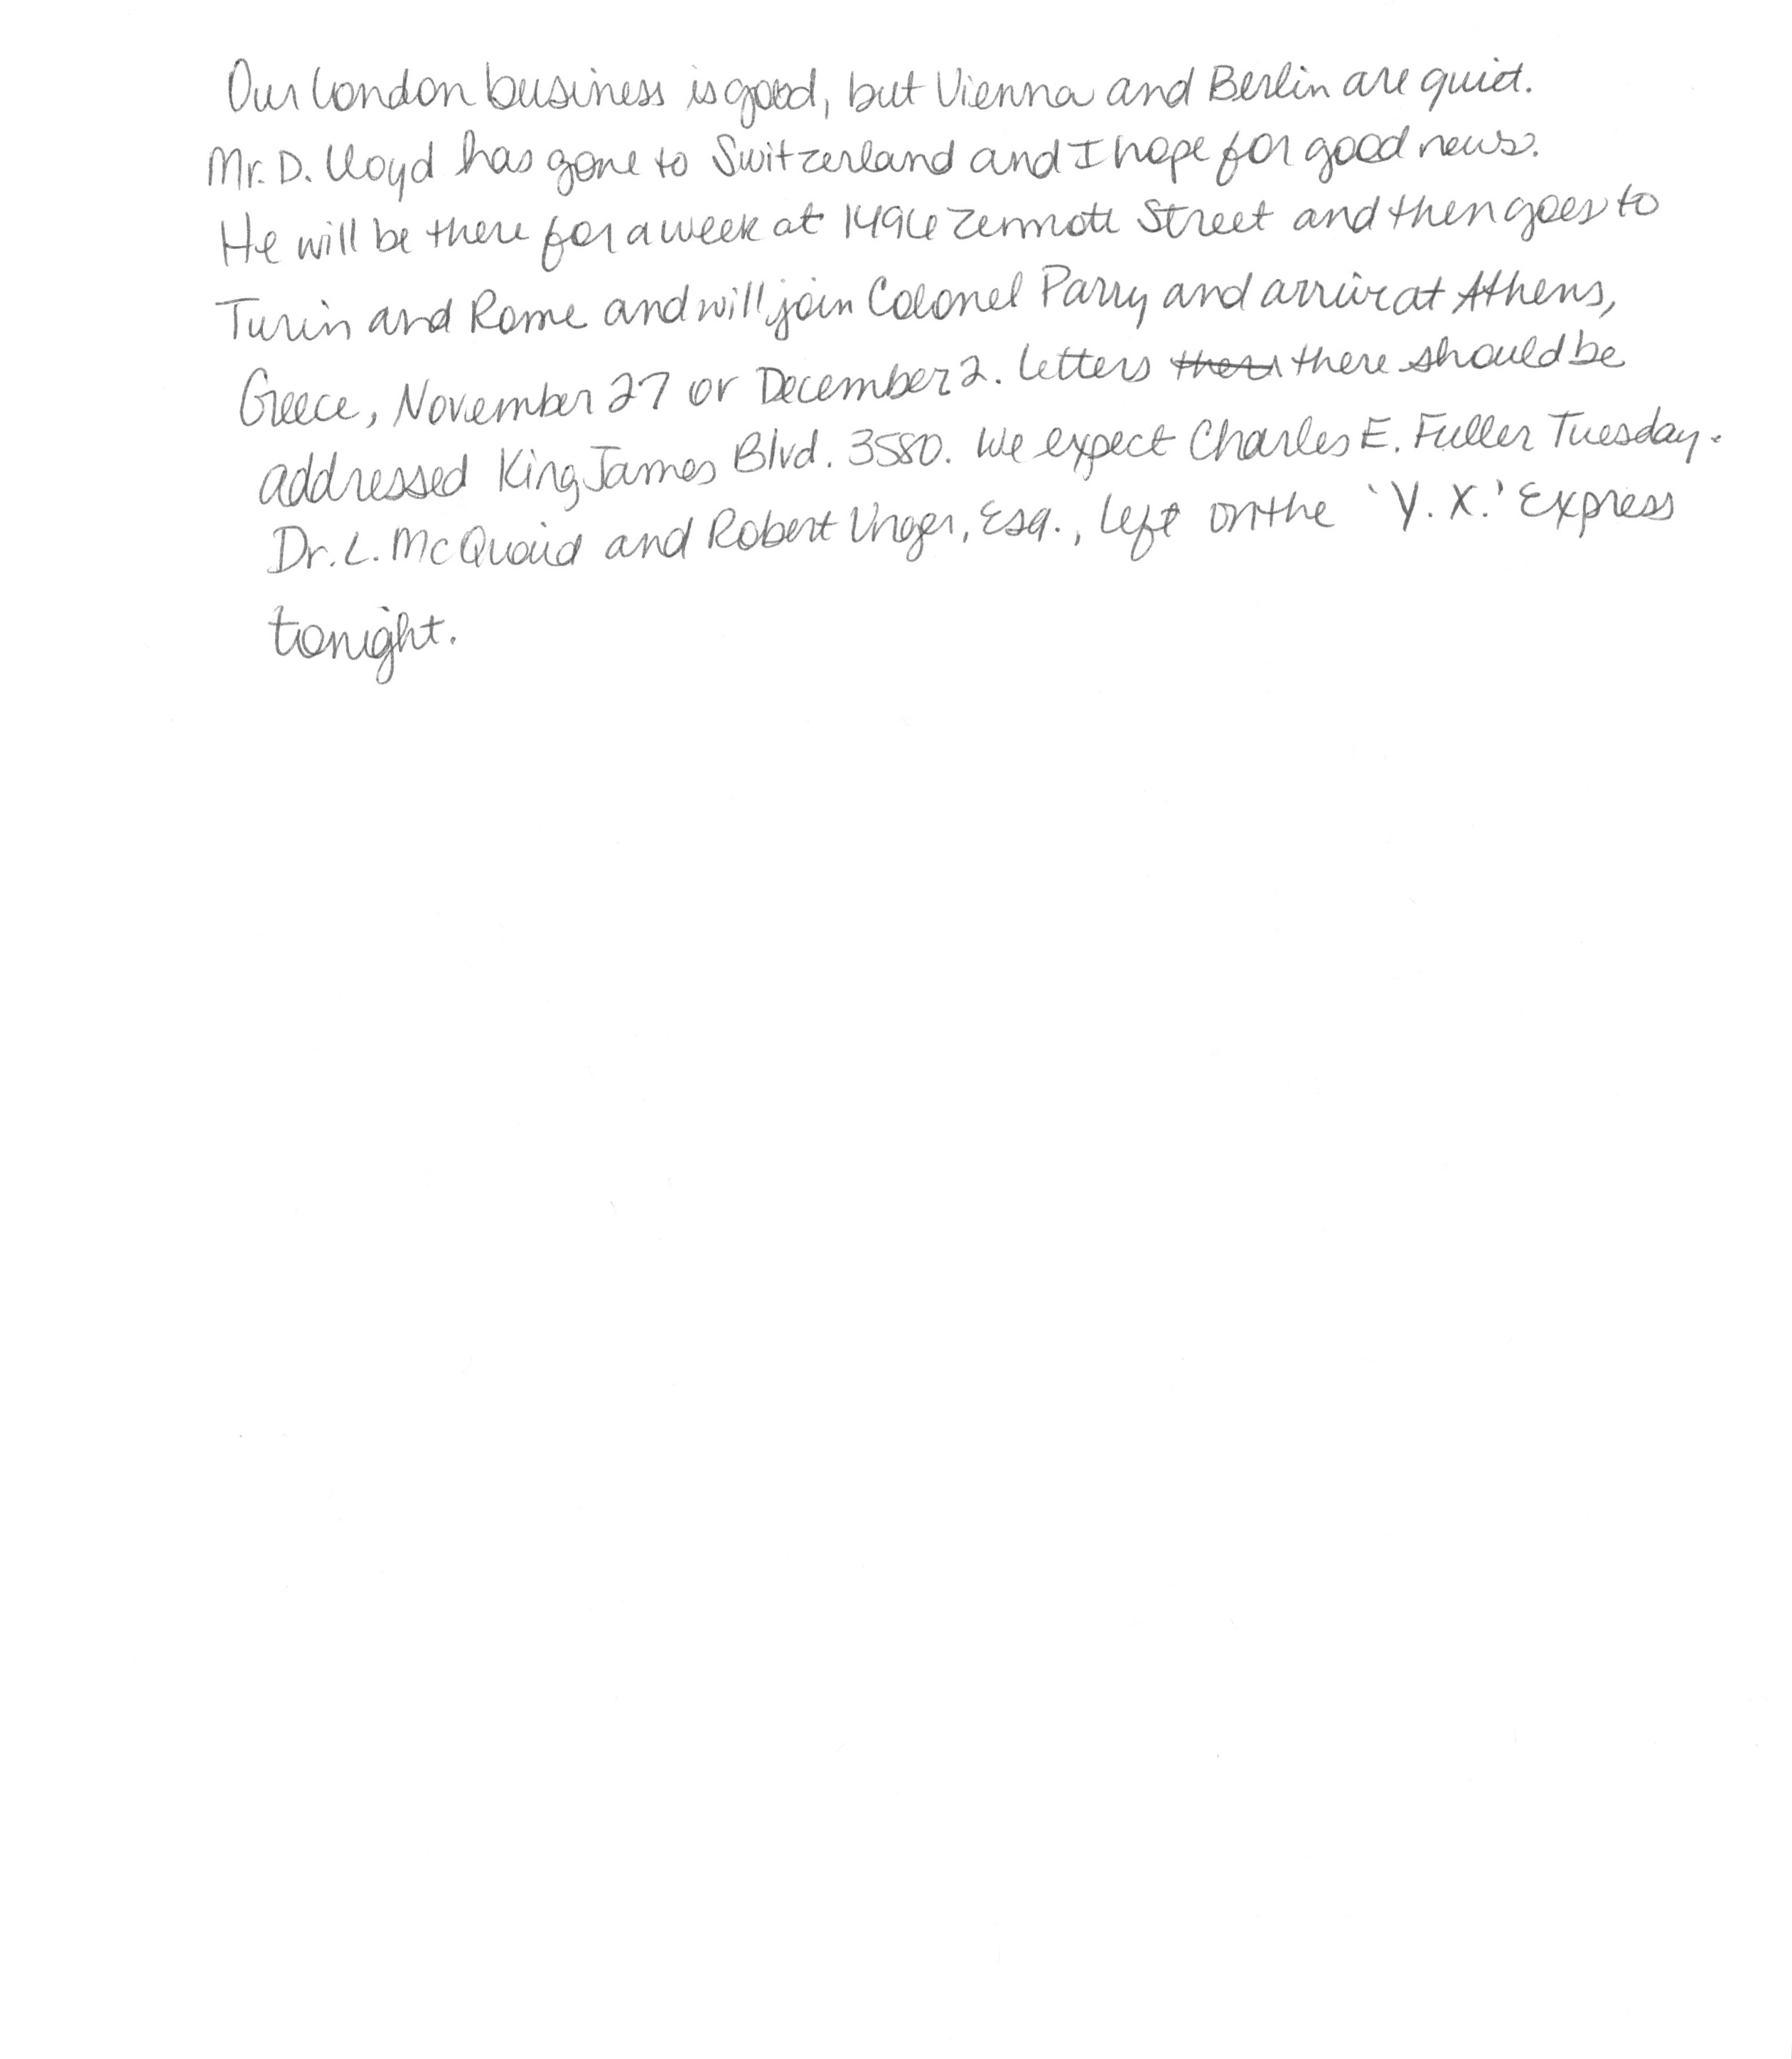 Our London business is good, but Vienna and Berlin are quiet.
Mr. D. Lloyd has gone to Switzerland and I hope for good news.
He will be there for a week at 1496 Zermott Street and then goes to
Turin and Rome and will join Colonel Parry and arrive at Athens,
Greece, November 27 or December 2. Letters there should be
addressed King James Blvd. 3580. We expect Charles E. Fuller Tuesday.
Dr. L. McQuaid and Robert Unger, Esq., left on the 'Y. X.' Express
tonight.